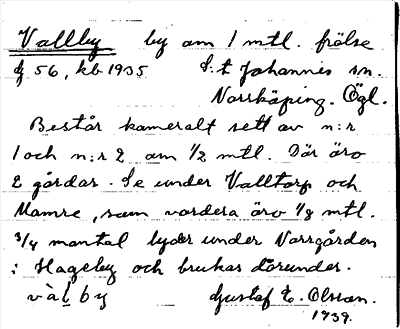 Vallby by om 1 mtl. frälse
dj 56, kb 1935 S:t Johannis sn.
Norrköping. Ögl.
Består kameralt sett av n:r
1 och n:r 2 om 1/2 mtl. Där äro
2 gårdar. Se under Valltorp och
Mamre, som vardera äro 1/8 mtl.
3/4 mantal lyder under Norrgården
i Hageby och brukas därunder.
vàlby Gustaf E. Olsson.
1939.